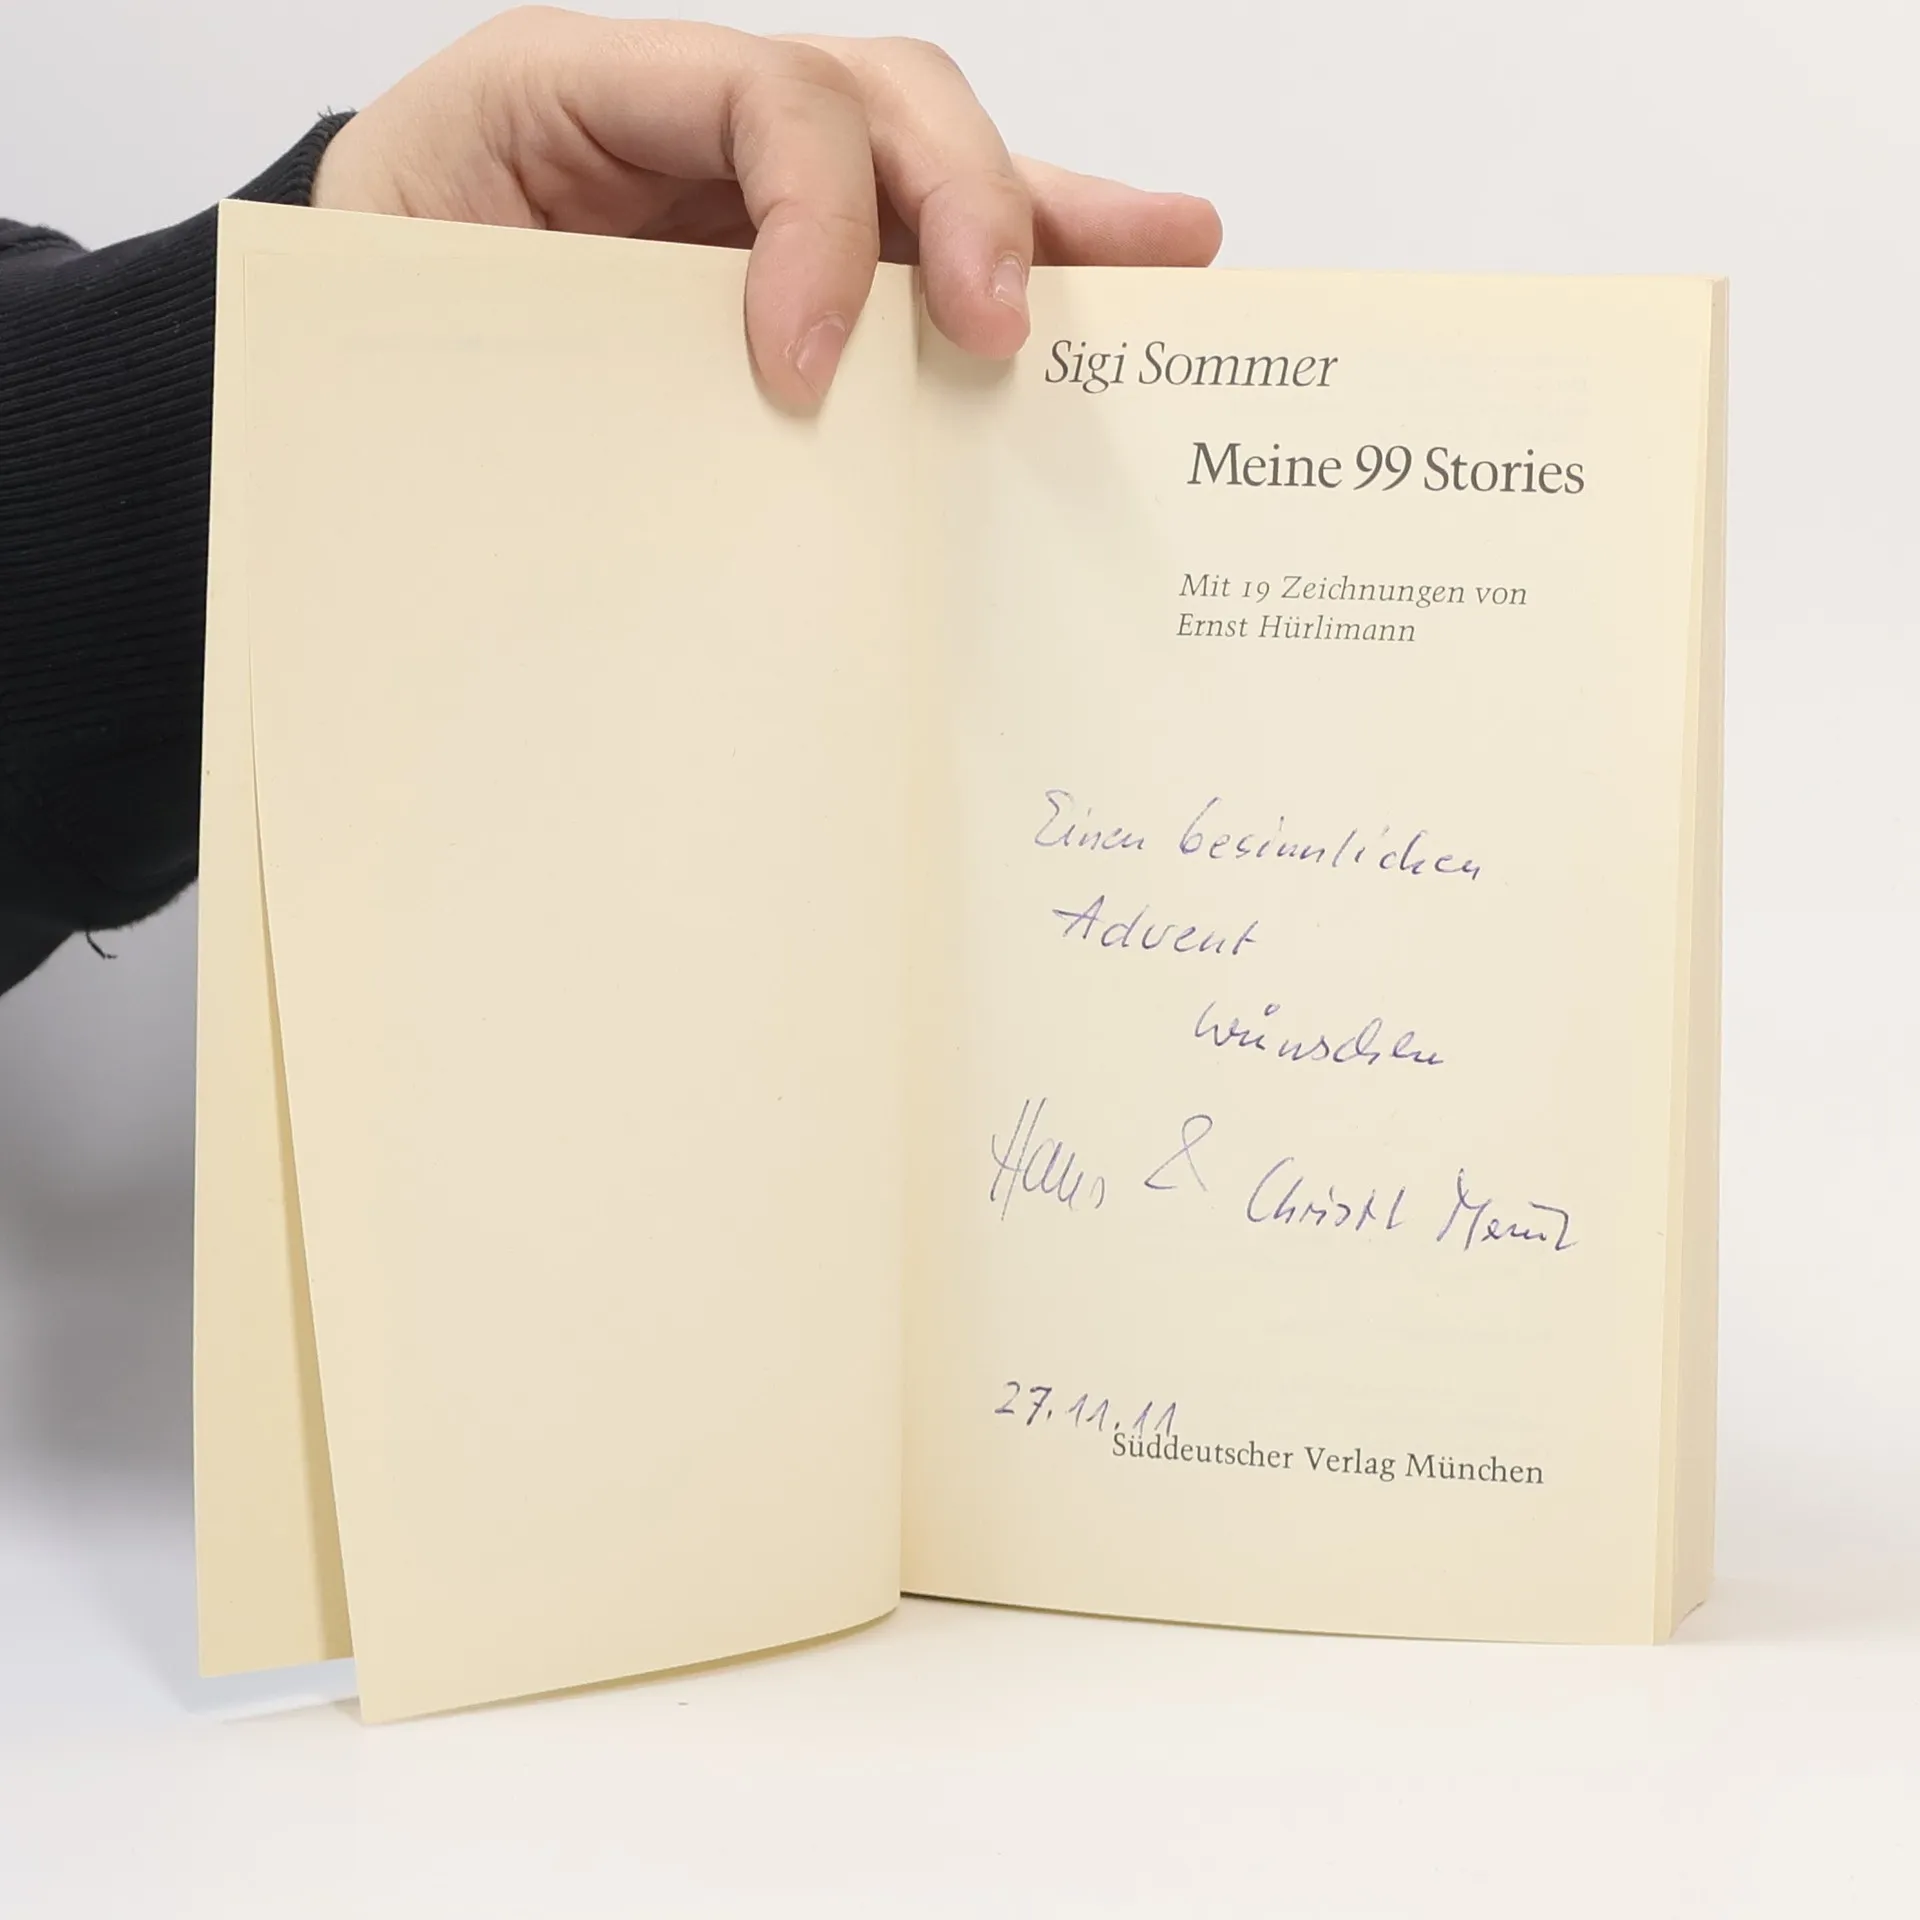 Sigi Sommer
Meine 99 Stories
Mit 19 Zeichnungen von
Ernst Hürlimann
Einen besinnlichen
Advent
wünschen
Hans & Christl
27.11.11
Süddeutscher Verlag München